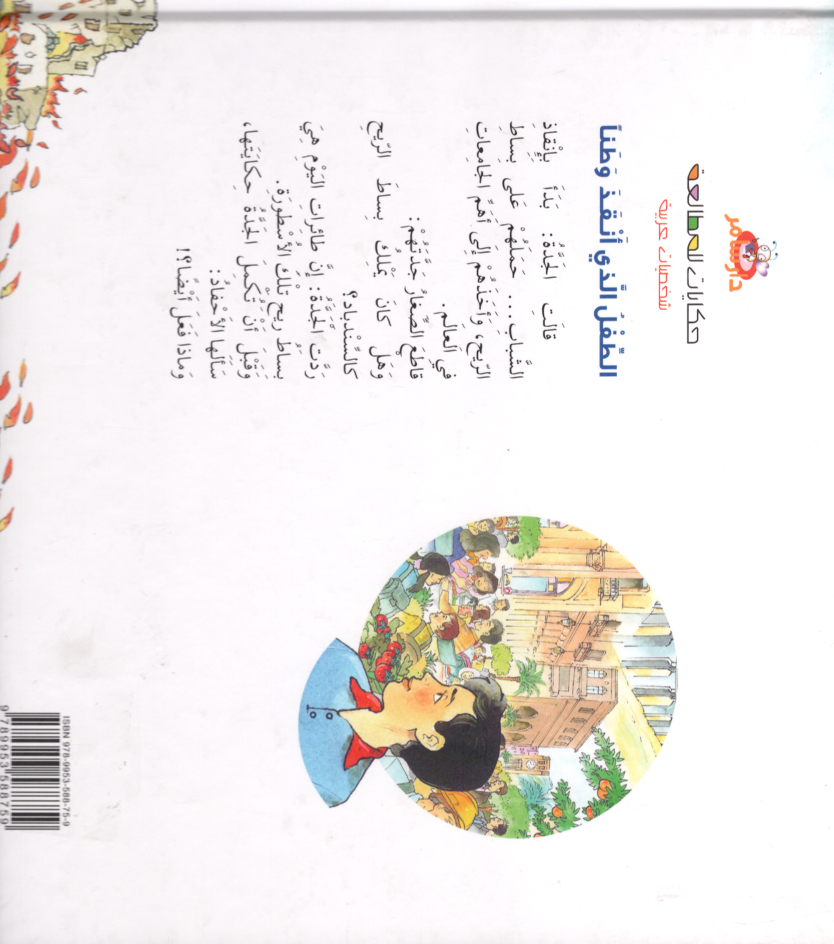 دار سامر
حكايات للمطالعة
شخصيات عربية
الطِّفْلُ الَّذي أَنْقَذَ وَطَناً
قالَتِ الجَدَّةُ: بَدَأَ بِإِنْقاذِ
الشَّبابِ... حَمَلَهُمْ عَلى بِساطِ
الرّيحِ، وَأَخَذَهُمْ إِلَى أَهَمِّ الجامِعاتِ
في العالَمِ.
قاطَعَ الصِّغارُ جَدَّتَهُمْ:
وَهَل كانَ يَمْلِكُ بِساطَ الرّيحِ
كالسَّنْدِباد؟
رَدَّتِ الجَدَّةُ: إِنَّ طائِراتِ اليَوْمِ هِيَ
بِساطُ ريحِ تِلْكَ الأُسْطورَةِ.
وَقَبْلَ أَنْ تُكْمِلَ الجَدَّةُ حِكايَتَها،
سَأَلَها الأَحْفادُ:
وَماذا فَعَلَ أَيْضًا؟!
ISBN 978-9953-588-75-9
9 789953 588759